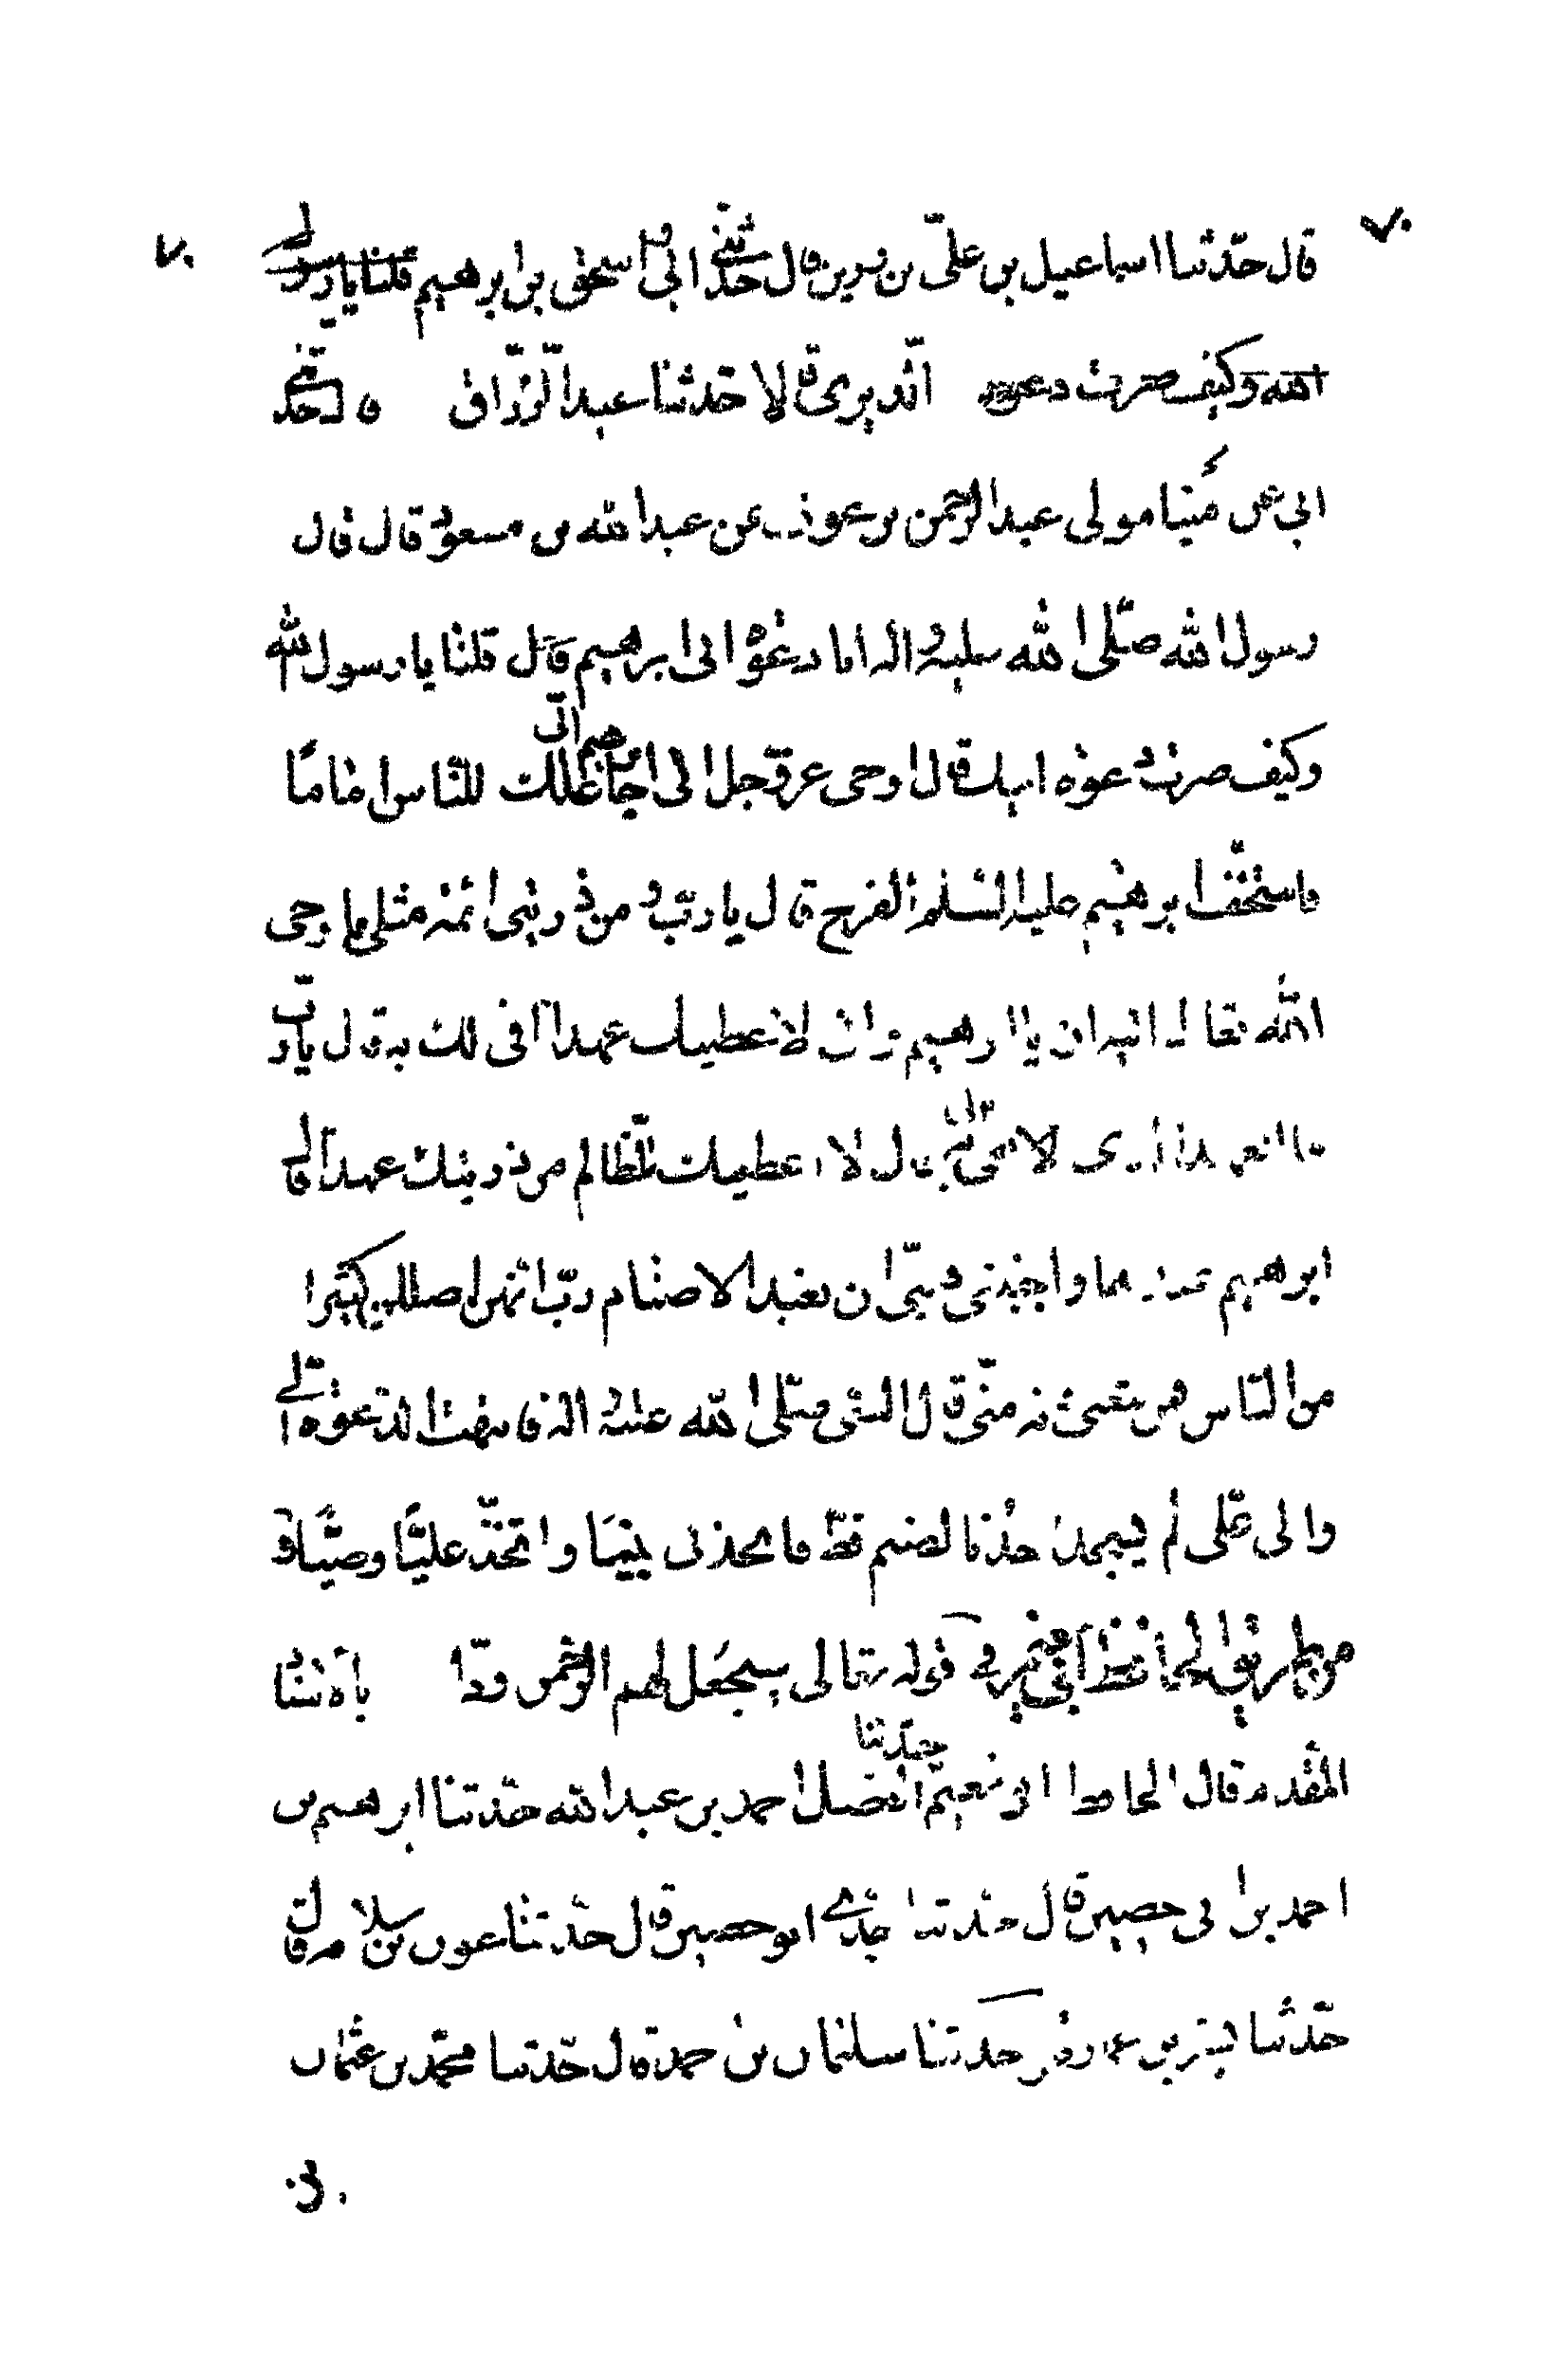 ٧٠ ٧٠
قال حدّثنا اسماعيل بن علىّ بن رزين قال حدّثنى ابى و اسحق بن ابرهيم قلنا يا رسول
الله وكيف صرت دعوة الدبرى قالا حدثنا عبد الرزّاق قال حدّثنى
ابى عن مينا مولى عبد الرحمن بن عوف عن عبد الله بن مسعود قال قال
رسول الله صلّى الله عليه واله انا دعوة ابى ابرهيم قال قلنا يا رسول الله
وكيف صرت دعوة ابيك قال اوحى عزّوجل الى ابرهيم انّى جاعلك للنّاس اماما
فاستخفّ ابرهيم عليه السّلم الفرح قال يا ربّ و من ذريتى ائمة مثلى فاوحى
الله تعالى اليه ان يا ابرهيم انى لا اعطيك عهدا لا افى لك به قال يا ربّ
ما العهد الذى لا تفى لى به قال لا اعطيك لظالم من ذريتك عهدا قال
ابرهيم عندها واجنبنى وبنىّ ان نعبد الاصنام ربّ انهن اضللن كثيرا
من النّاس فمن تبعنى فانه منّى قال النبى صلّى الله عليه واله فانتهت الدعوة الىّ
والى علىّ لم يسجد احدنا لصنم قطّ فاتخذنى نبيّا واتّخذ عليّا وصيّا و
من طريق الحافظ ابى نعيم فى قوله تعالى سيجعل لهم الرّحمن ودّا باسناده
المقدم قال الحافظ ابو نعيم حدّثنا الفضل احمد بن عبد الله حدّثنا ابرهيم بن
احمد بن ابى حصين قال حدّثنا جدّى ابو حصين قال حدّثنا عون بن سلام قال
حدّثنا بشر بن عمارة حدثنا سليمان بن حمد قال حدّثنا محمّد بن عثمان